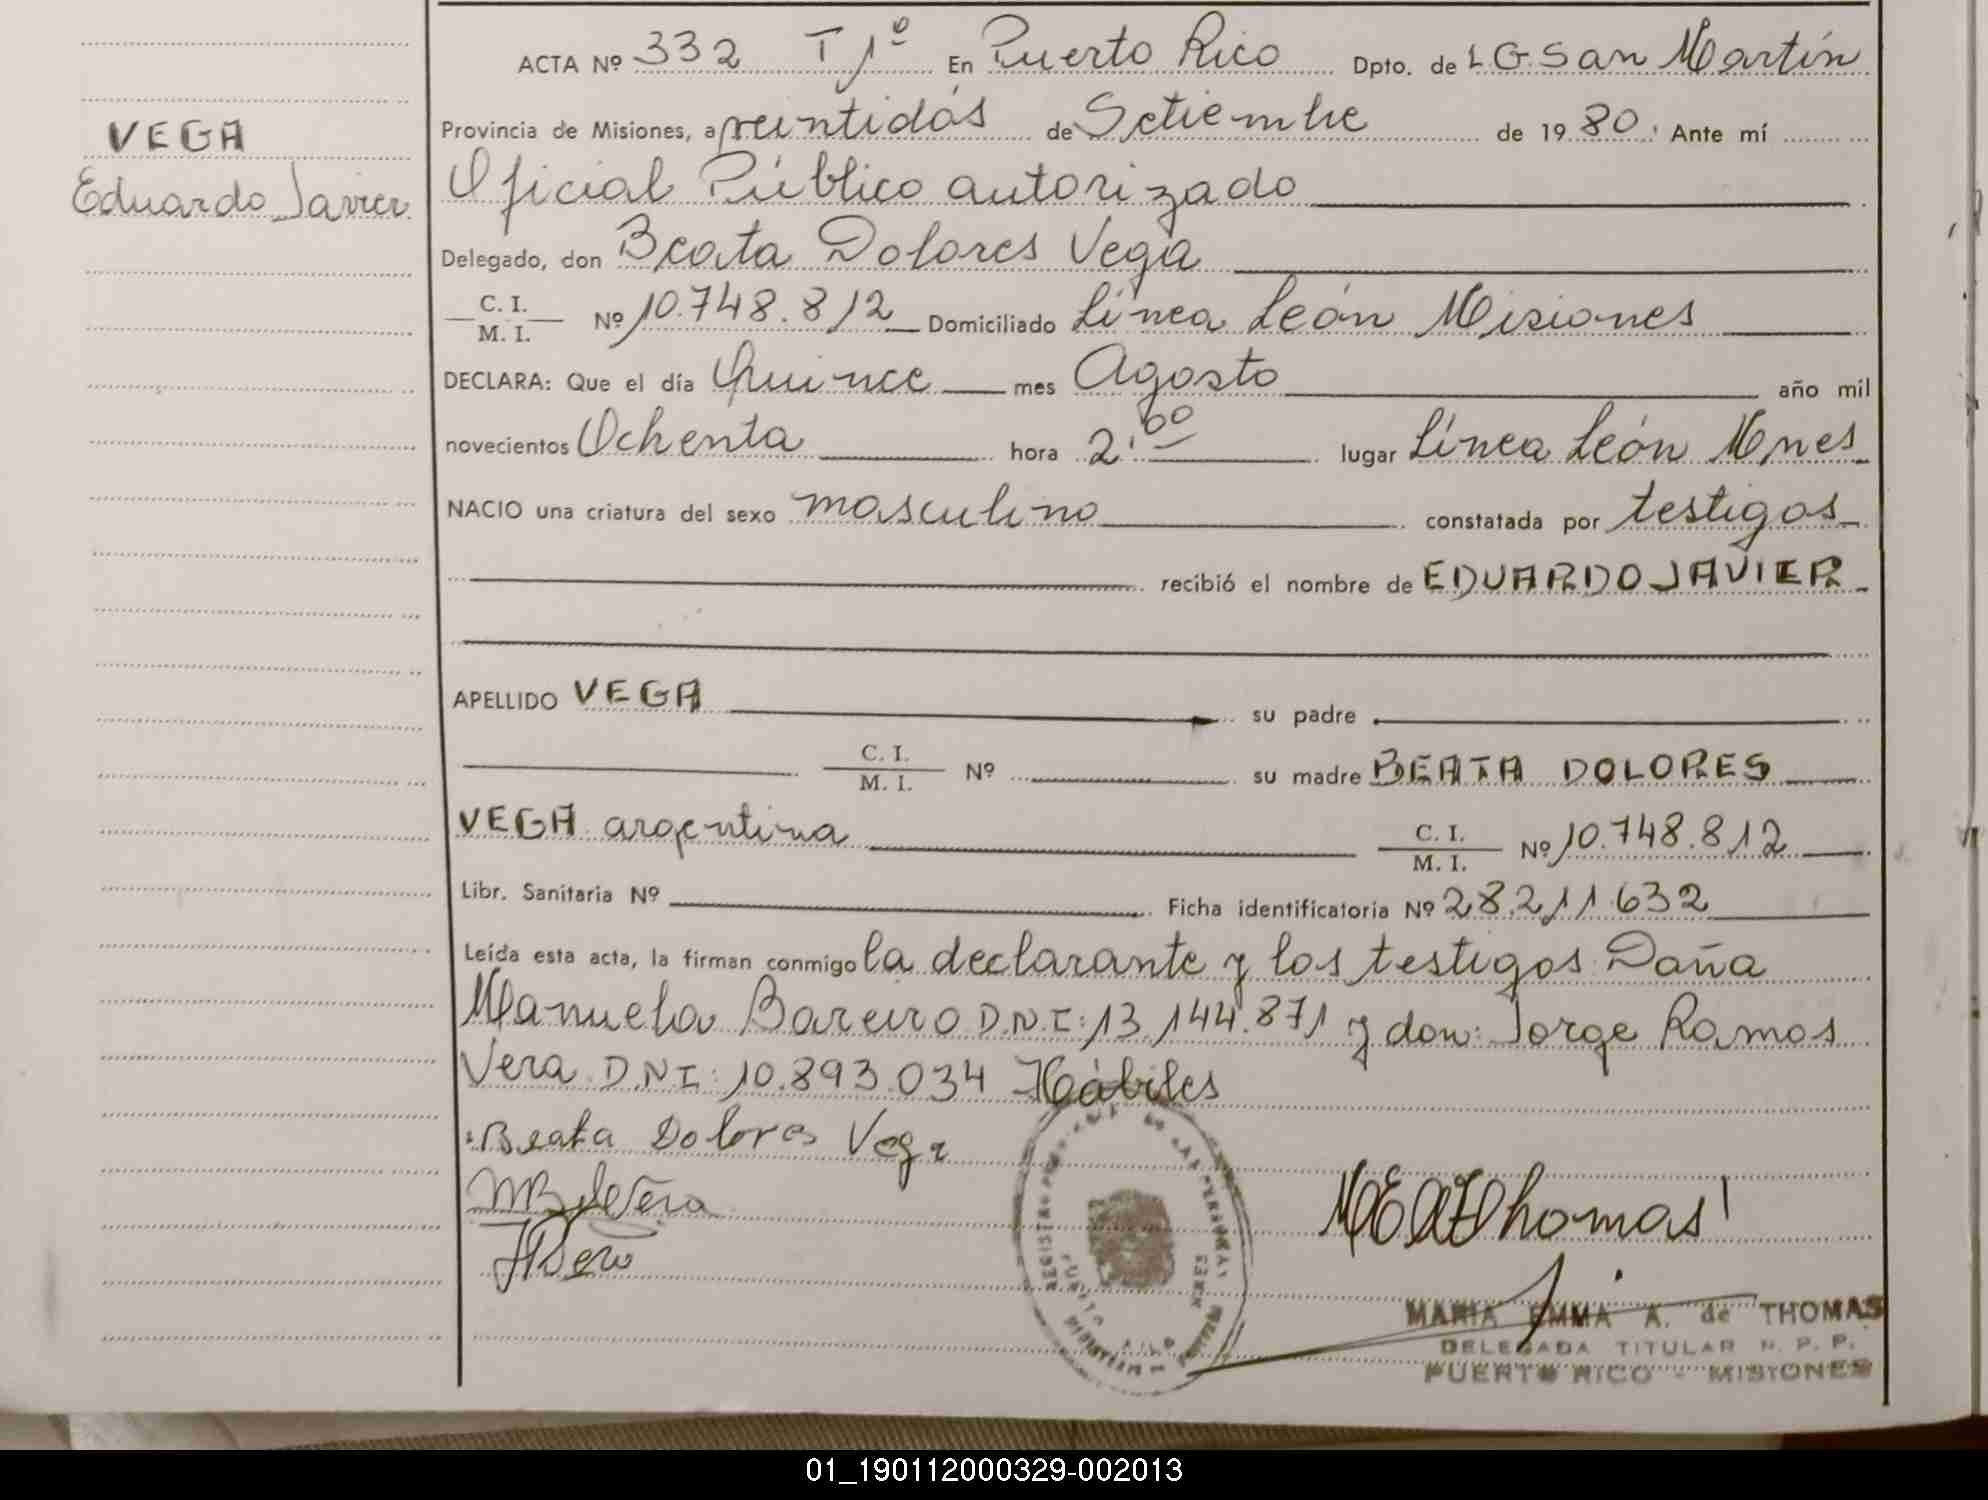 ACTA Nº 332 T 1º En Puerto Rico Dpto. de L.G. San Martín
Provincia de Misiones, a veintidós de Setiembre de 1980. Ante mí
VEGA
Eduardo Javier
Oficial Público autorizado
Delegado, don Beata Dolores Vega
C. I. / M. I. Nº 10.748.812 Domiciliado Línea León Misiones
DECLARA: Que el día Quince mes Agosto año mil
novecientos Ochenta hora 2:00 lugar Línea León Mnes
NACIO una criatura del sexo masculino constatada por testigos
recibió el nombre de EDUARDO JAVIER
APELLIDO VEGA su padre
C. I. / M. I. Nº su madre BEATA DOLORES
VEGA argentina C. I. / M. I. Nº 10.748.812
Libr. Sanitaria Nº Ficha identificatoria Nº 28.211.632
Leída esta acta, la firman conmigo la declarante y los testigos Doña
Manuela Bareiro D.N.I: 13.144.871 y don: Jorge Ramos
Vera D.N.I: 10.893.034 Hábiles
Beata Dolores Vega
MARIA EMMA A. de THOMAS
DELEGADA TITULAR N. P. P.
PUERTO RICO - MISIONES
01_190112000329-002013